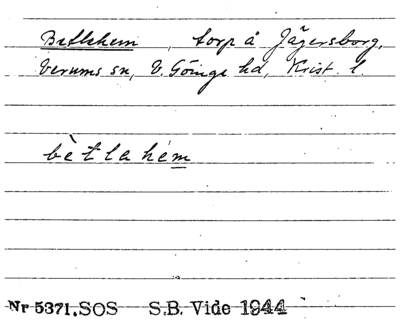 Betlehem, torp å Jägersborg,
Verums sn, V. Göinge hd, Krist. l.
bètlahém
Nr 5371. SOS S.B. Vide 1944